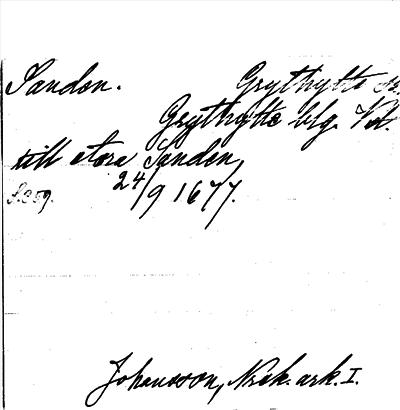 Sanden. Grythytte sn.
Grythytte blg. Vstm.
till stora Sanden
S. 359. 24/9 1677.
Johansson, Nrk. ark. I.